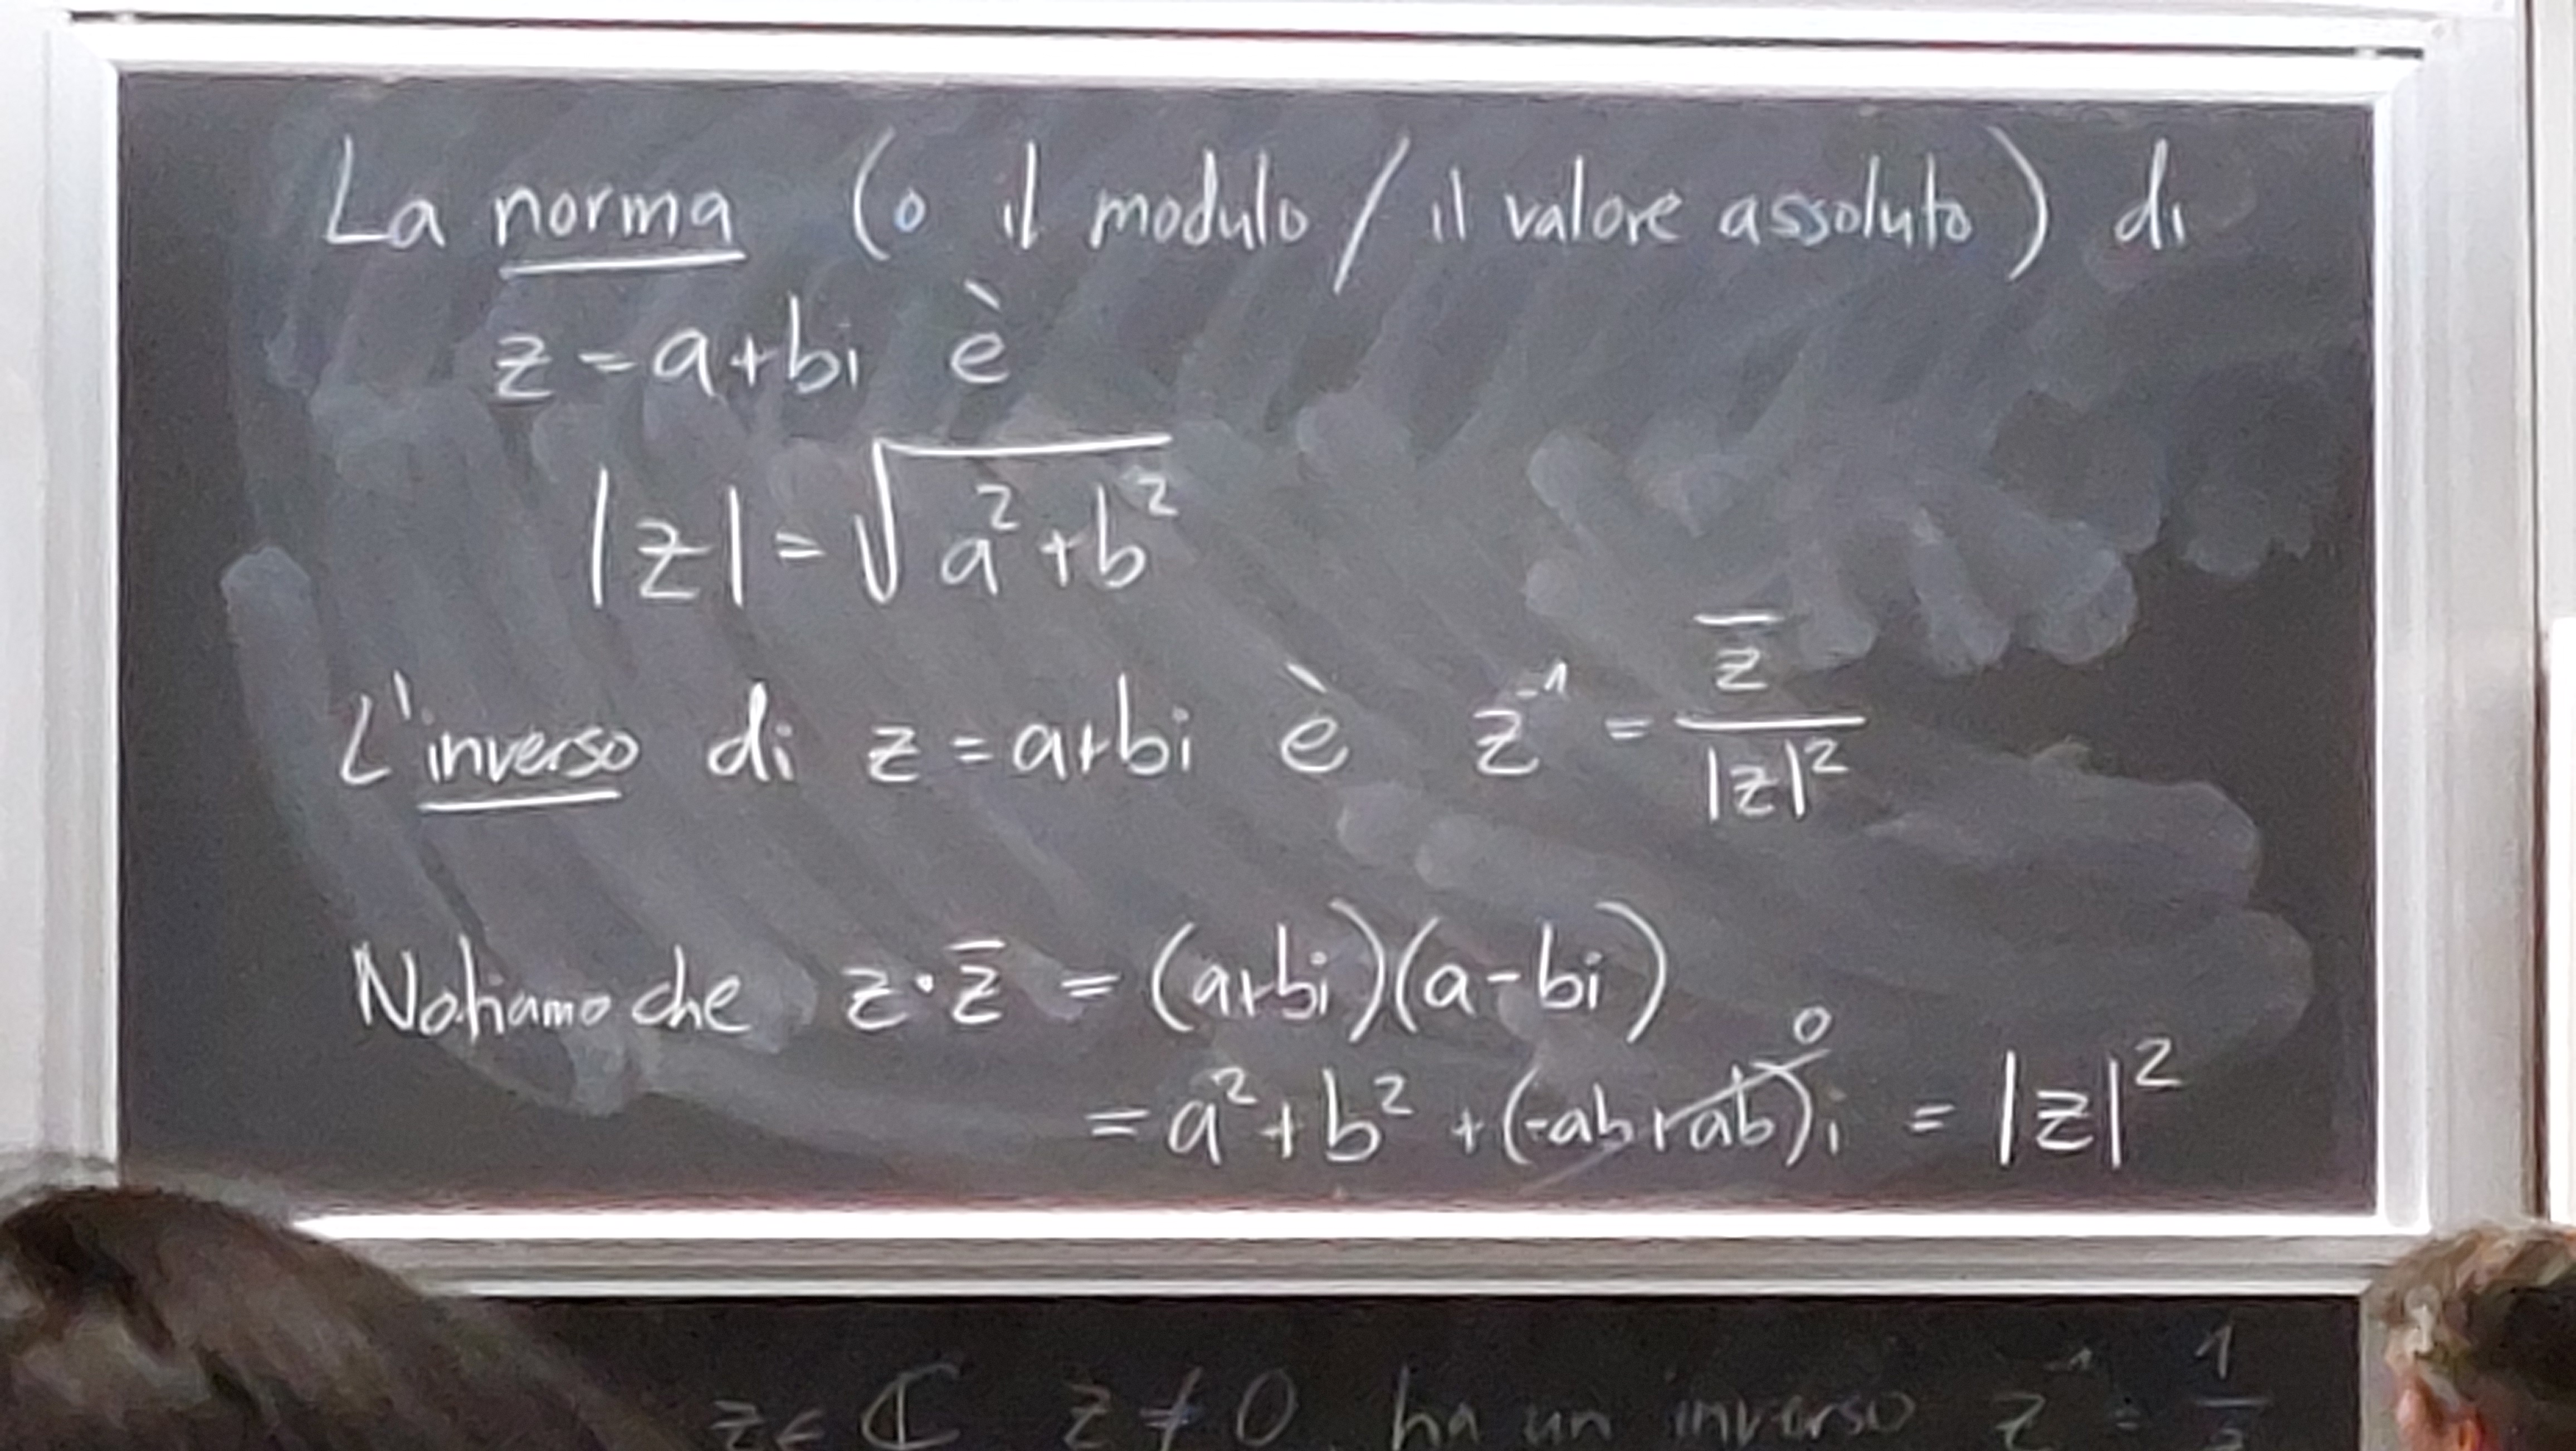 La norma (o il modulo / il valore assoluto) di
z = a+bi è
|z| = √(a²+b²)
L'inverso di z = a+bi è z⁻¹ = z̅/|z|²
Notiamo che z·z̅ = (a+bi)(a-bi)
= a²+b² + (-ab+ab)i = |z|²
0
z∈ℂ z≠0 ha un inverso z⁻¹ = 1/z